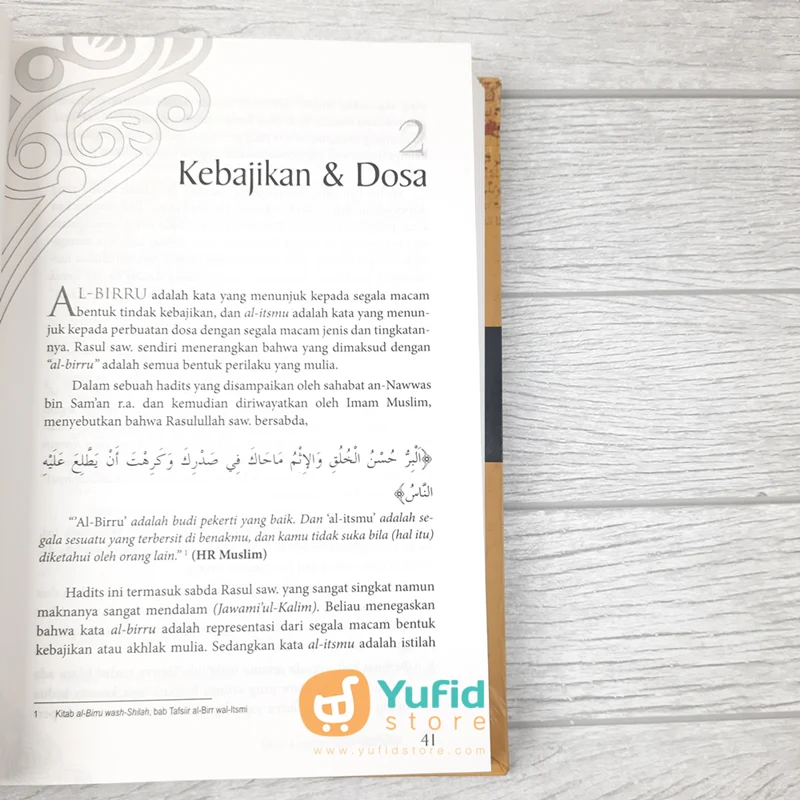 2
Kebajikan & Dosa
AL-BIRRU adalah kata yang menunjuk kepada segala macam
bentuk tindak kebajikan, dan al-itsmu adalah kata yang menun-
juk kepada perbuatan dosa dengan segala macam jenis dan tingkatan-
nya. Rasul saw. sendiri menerangkan bahwa yang dimaksud dengan
“al-birru” adalah semua bentuk perilaku yang mulia.
Dalam sebuah hadits yang disampaikan oleh sahabat an-Nawwas
bin Sam’an r.a. dan kemudian diriwayatkan oleh Imam Muslim,
menyebutkan bahwa Rasulullah saw. bersabda,
﴿اَلْبِرُّ حُسْنُ الْخُلُقِ وَالإِثْمُ مَاحَاكَ فِي صَدْرِكَ وَكَرِهْتَ أَنْ يَطَّلِعَ عَلَيْهِ
النَّاسُ﴾
“‘Al-Birru’ adalah budi pekerti yang baik. Dan ‘al-itsmu’ adalah se-
gala sesuatu yang terbersit di benakmu, dan kamu tidak suka bila (hal itu)
diketahui oleh orang lain.” 1 (HR Muslim)
Hadits ini termasuk sabda Rasul saw. yang sangat singkat namun
maknanya sangat mendalam (Jawami’ul-Kalim). Beliau menegaskan
bahwa kata al-birru adalah representasi dari segala macam bentuk
kebajikan atau akhlak mulia. Sedangkan kata al-itsmu adalah istilah
1 Kitab al-Birru wash-Shilah, bab Tafsiir al-Birr wal-Itsmi
Yufid
store
www.yufidstore.com
41